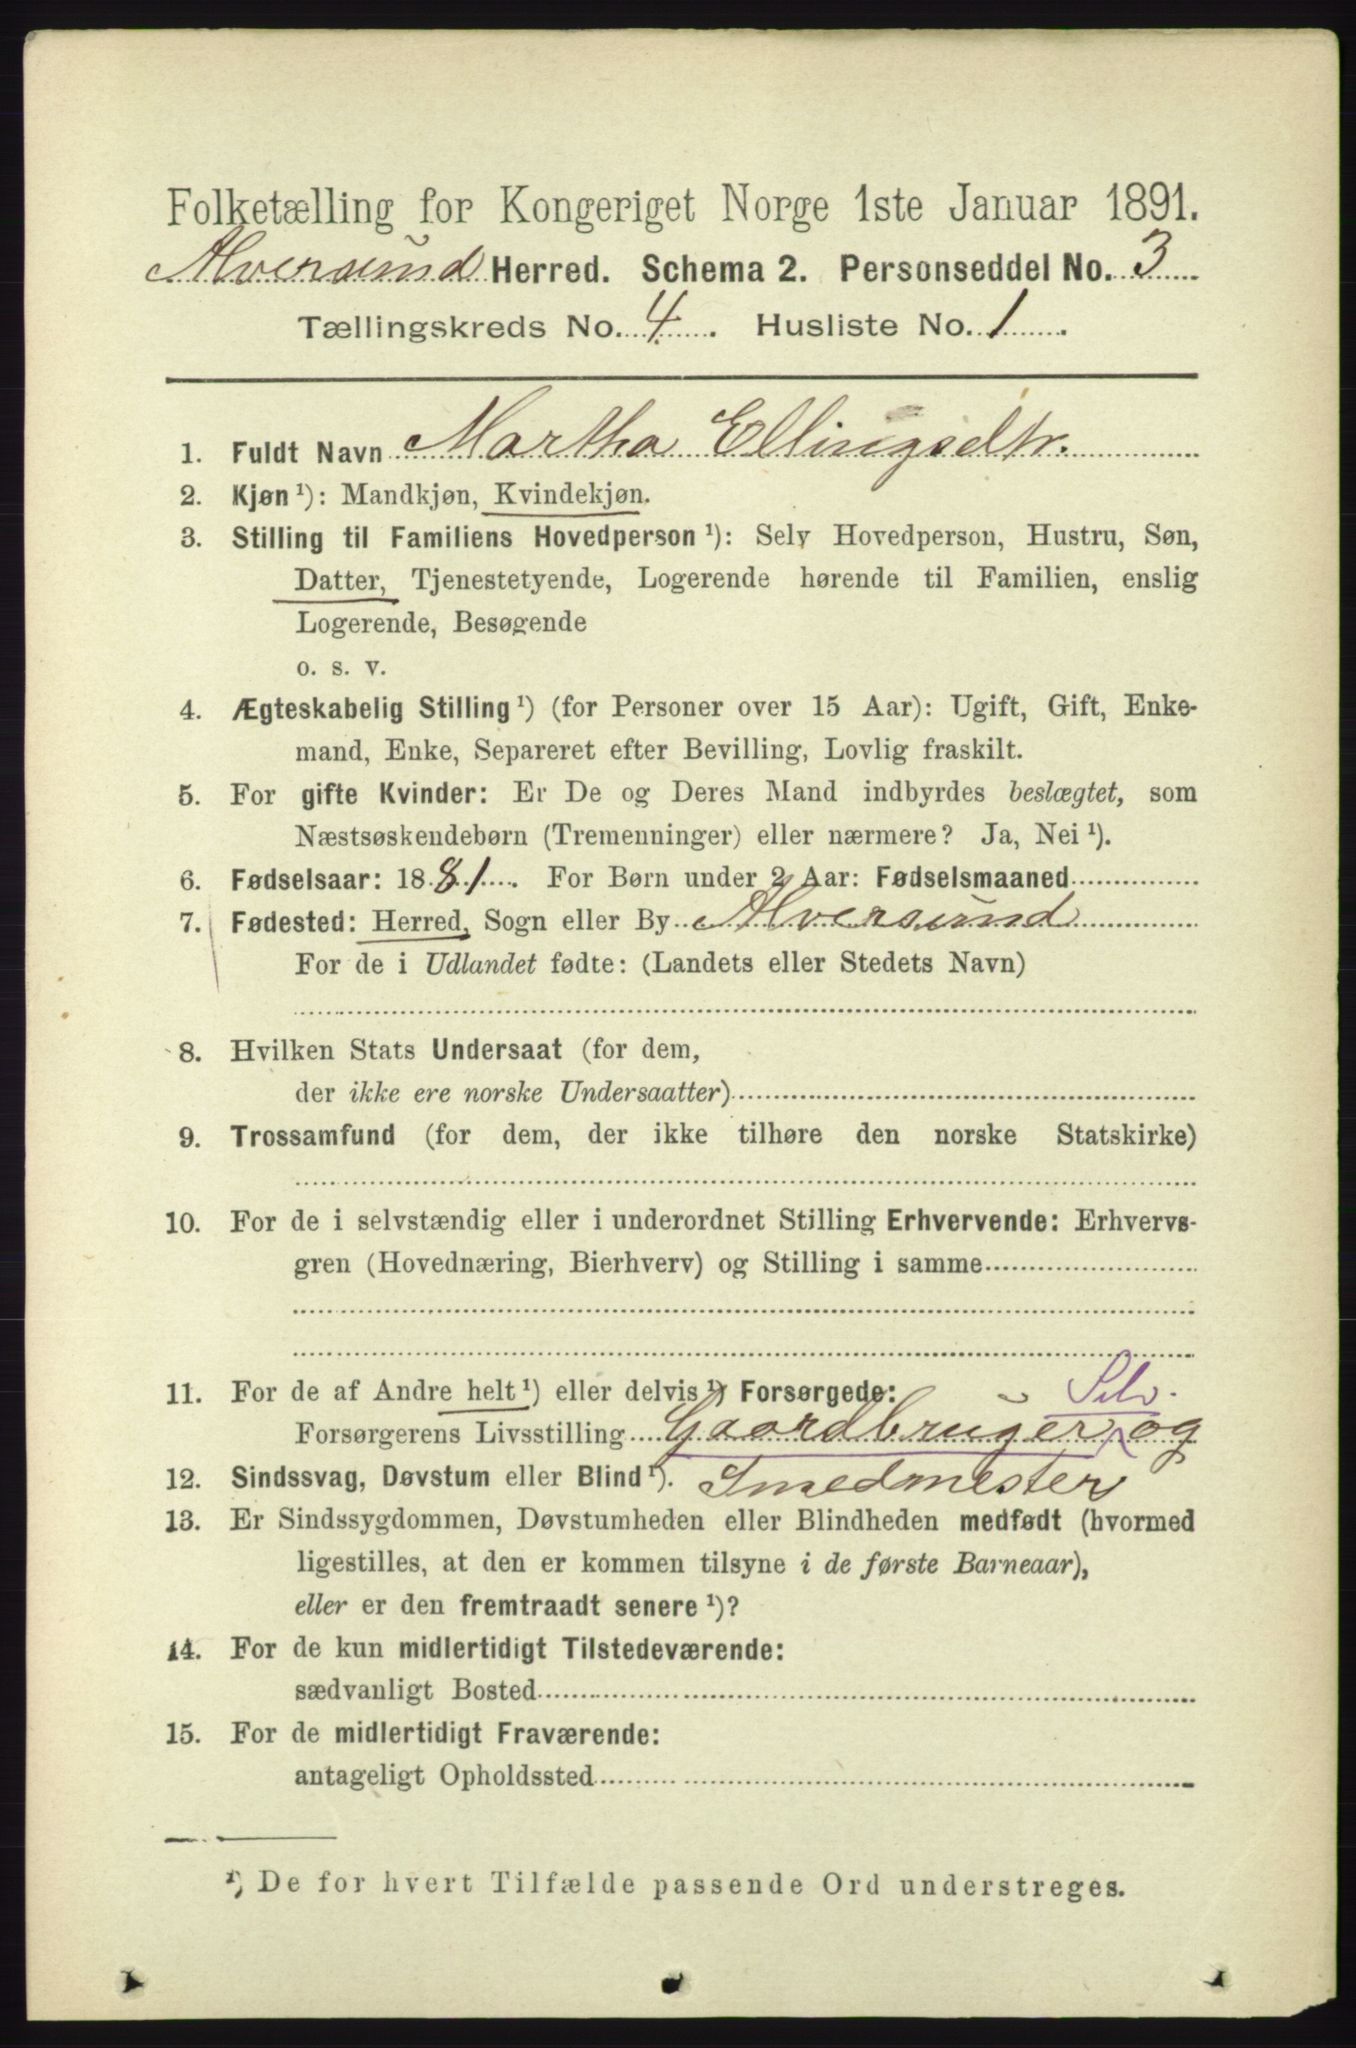 Folketælling for Kongeriget Norge 1ste Januar 1891.
Alversund Herred. Schema 2. Personseddel No. 3
Tællingskreds No. 4. Husliste No. 1.
1. Fuldt Navn Martha Ellingsdtr.
2. Kjøn ¹): Mandkjøn, Kvindekjøn.
3. Stilling til Familiens Hovedperson ¹): Selv Hovedperson, Hustru, Søn,
Datter, Tjenestetyende, Logerende hørende til Familien, enslig
Logerende, Besøgende
o. s. v.
4. Ægteskabelig Stilling ¹) (for Personer over 15 Aar): Ugift, Gift, Enke-
mand, Enke, Separeret efter Bevilling, Lovlig fraskilt.
5. For gifte Kvinder: Er De og Deres Mand indbyrdes beslægtet, som
Næstsøskendebørn (Tremenninger) eller nærmere? Ja, Nei ¹).
6. Fødselsaar: 1881. For Børn under 2 Aar: Fødselsmaaned
7. Fødested: Herred, Sogn eller By Alversund
For de i Udlandet fødte: (Landets eller Stedets Navn)
8. Hvilken Stats Undersaat (for dem,
der ikke ere norske Undersaatter)
9. Trossamfund (for dem, der ikke tilhøre den norske Statskirke)
10. For de i selvstændig eller i underordnet Stilling Erhvervende: Erhvervs-
gren (Hovednæring, Bierhverv) og Stilling i samme
11. For de af Andre helt ¹) eller delvis ¹) Forsørgede: Selv.
Forsørgerens Livsstilling Gaardbruger og
12. Sindssvag, Døvstum eller Blind ¹). Smedmester
13. Er Sindssygdommen, Døvstumheden eller Blindheden medfødt (hvormed
ligestilles, at den er kommen tilsyne i de første Barneaar),
eller er den fremtraadt senere ¹)?
14. For de kun midlertidigt Tilstedeværende:
sædvanligt Bosted
15. For de midlertidigt Fraværende:
antageligt Opholdssted
¹) De for hvert Tilfælde passende Ord understreges.